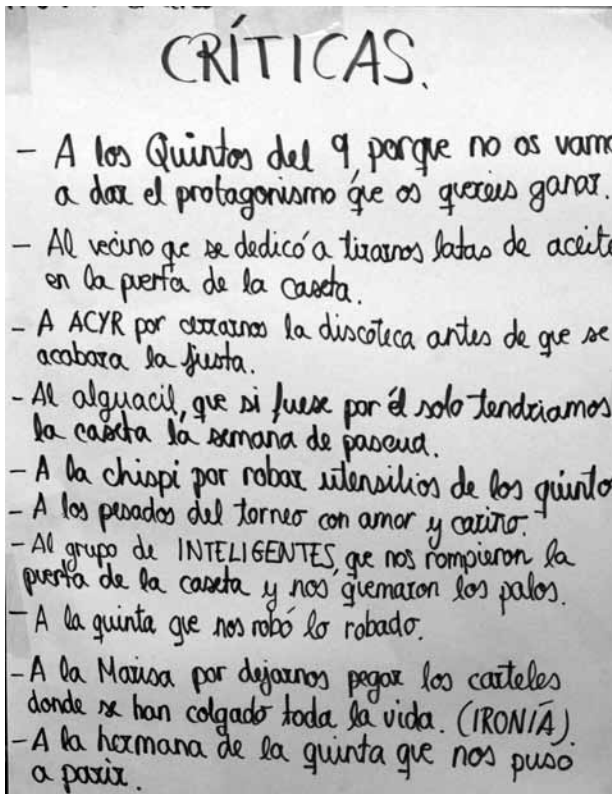 CRÍTICAS.
- A los Quintos del 9, porque no os vamo
a dar el protagonismo que os quereis ganar.
- Al vecino qe se dedicó a tirarnos latas de aceite
en la puerta de la caseta.
- A ACYR por cerrarnos la discoteca antes de que se
acabara la fiesta.
- Al alguacil, que si fuese por él solo tendriamos
la caseta la semana de pascua.
- A la chispi por robar utensilios de los quinto
- A los pesados del torneo con amor y cariño.
- Al grupo de INTELIGENTES, qe nos rompieron la
puerta de la caseta y nos quemaron los palos.
- A la quinta que nos robó lo robado.
- A la Marisa por dejarnos pegar los carteles
donde se han colgado toda la vida. (IRONÍA)
- A la hermana de la quinta que nos puso
a parir.